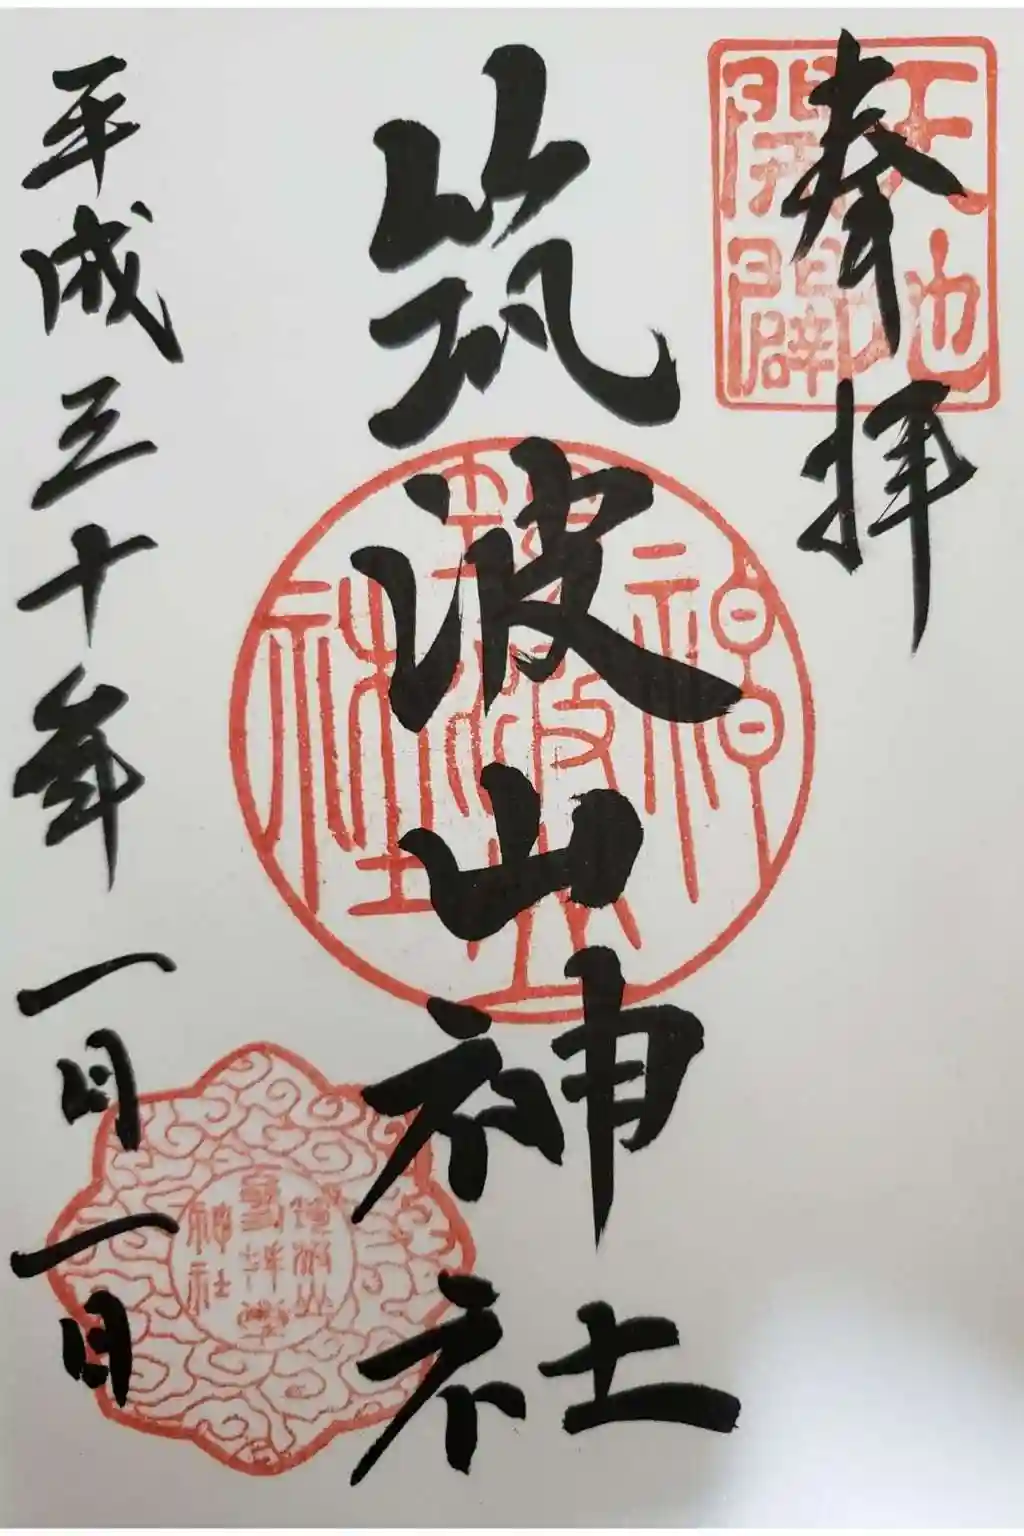 奉拝
天地
開闢
筑波山神社
筑波山
神社
平成三十年一月一日
筑波山
神社